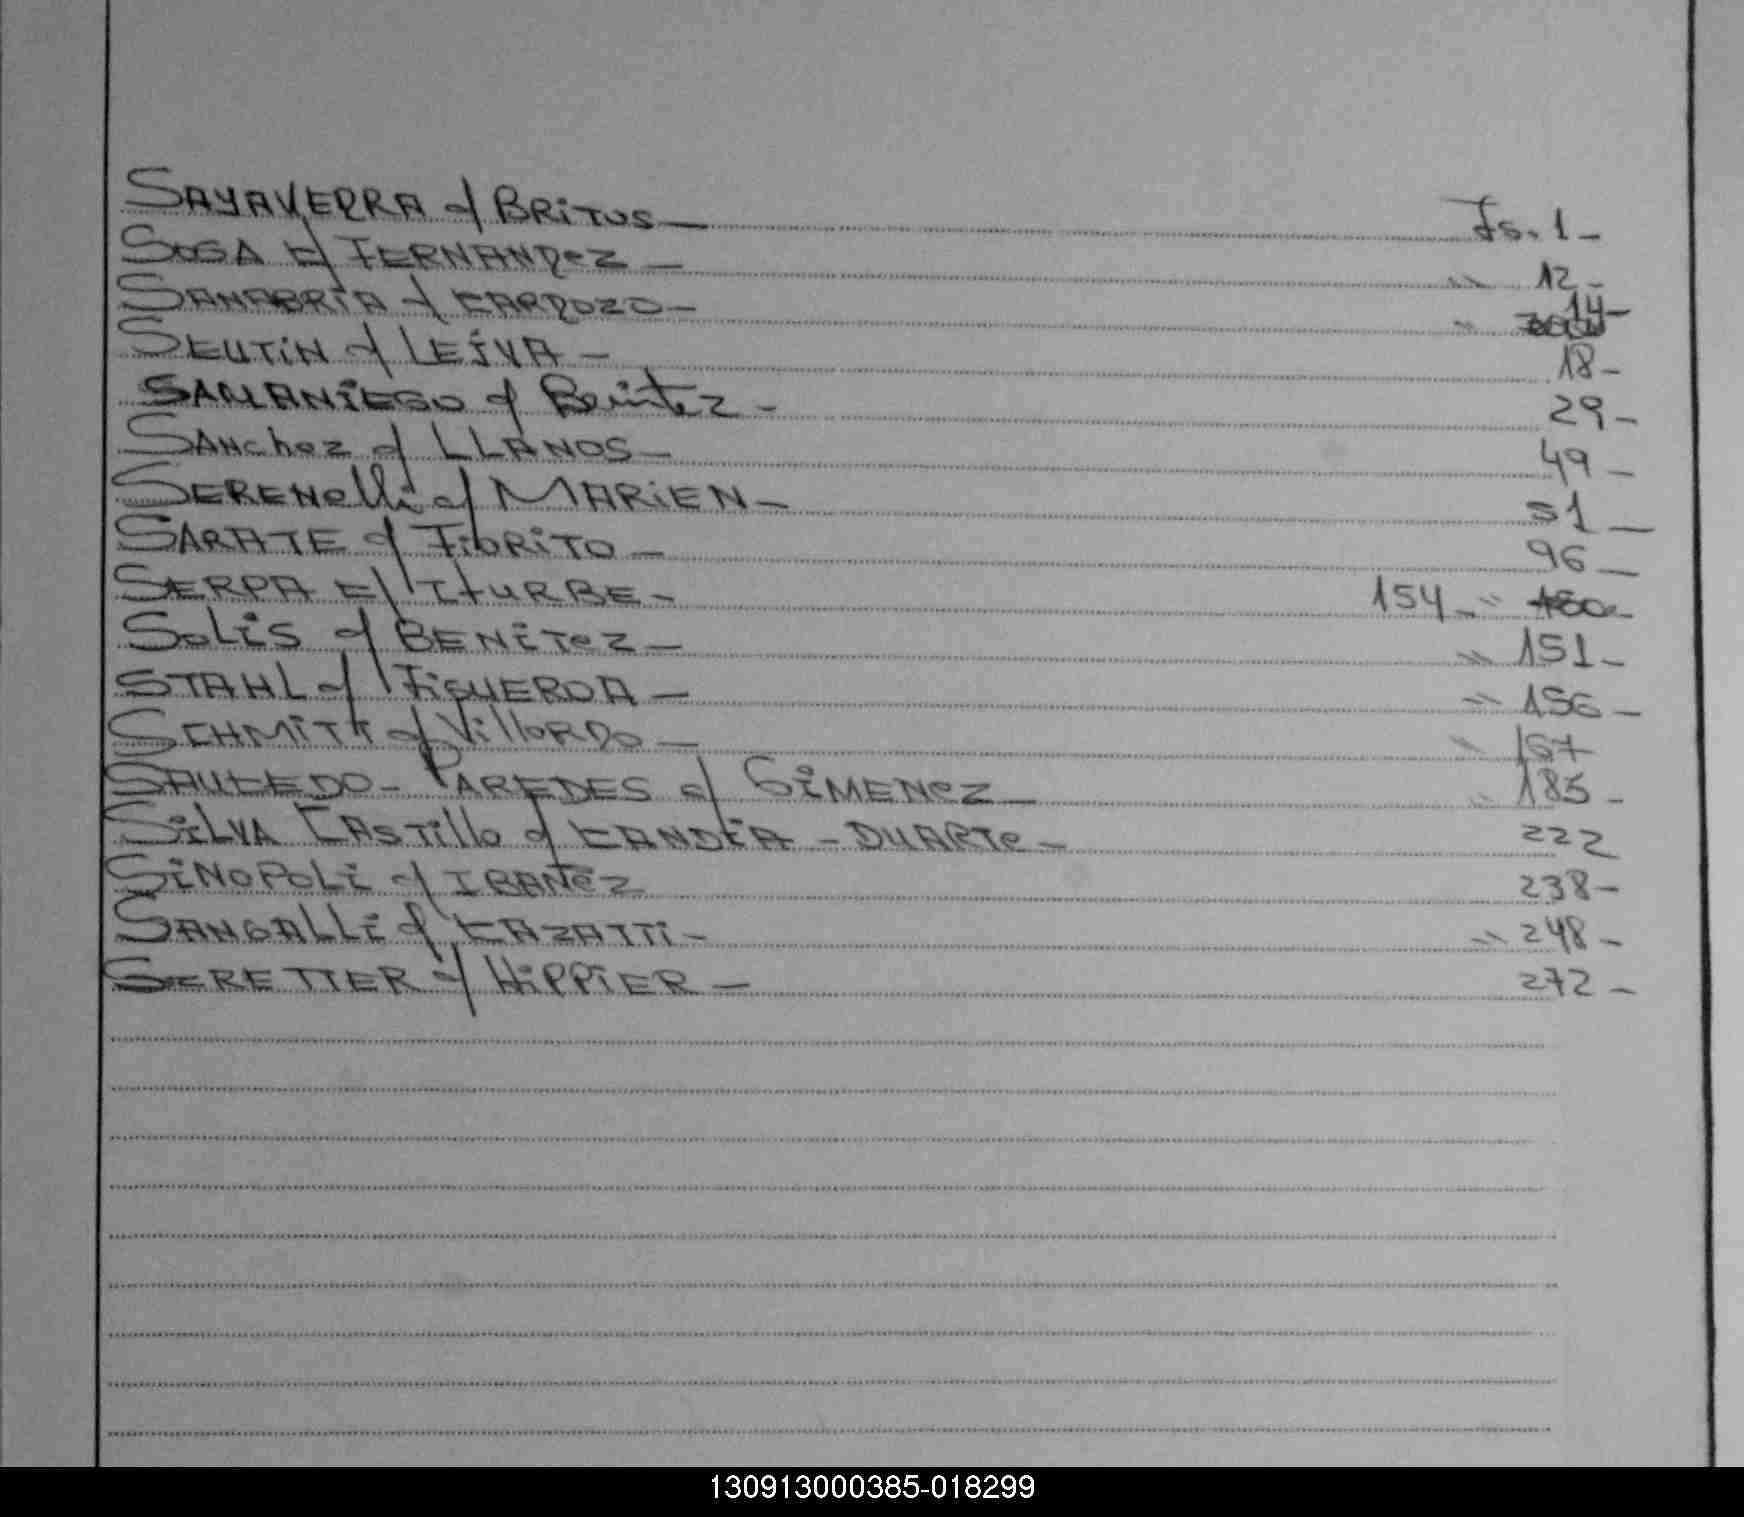 SAYAVERRA c/ BRITOS — Fs. 1 -
SOSA c/ FERNANDEZ — " 12 -
SANABRIA c/ CARDOZO - " 14 -
SEUTIN c/ LEIVA - 18 -
SAMANIEGO c/ Benitez - 29 -
SANchez c/ LLANOS - 49 -
SERENelli c/ MARIEN - 51 —
SARATE c/ FioRiTO - 96 —
SERPA c/ ITURBE - 154 - " 150 -
SoLiS c/ BENITeZ - " 151 -
STAHL c/ FiGUEROA - " 156 -
SCHMITT c/ VillORDO - " 157
SAUCEDO - PAREDES c/ GiMENeZ - " 185 -
SiLVA CASTillo c/ CANDIA - DUARTe - 222
SiNOPOLi c/ IBAÑeZ 238 -
SANGALLi c/ CAZATTi - " 248 -
SERETTER c/ HiPPiER - 272 -
130913000385-018299